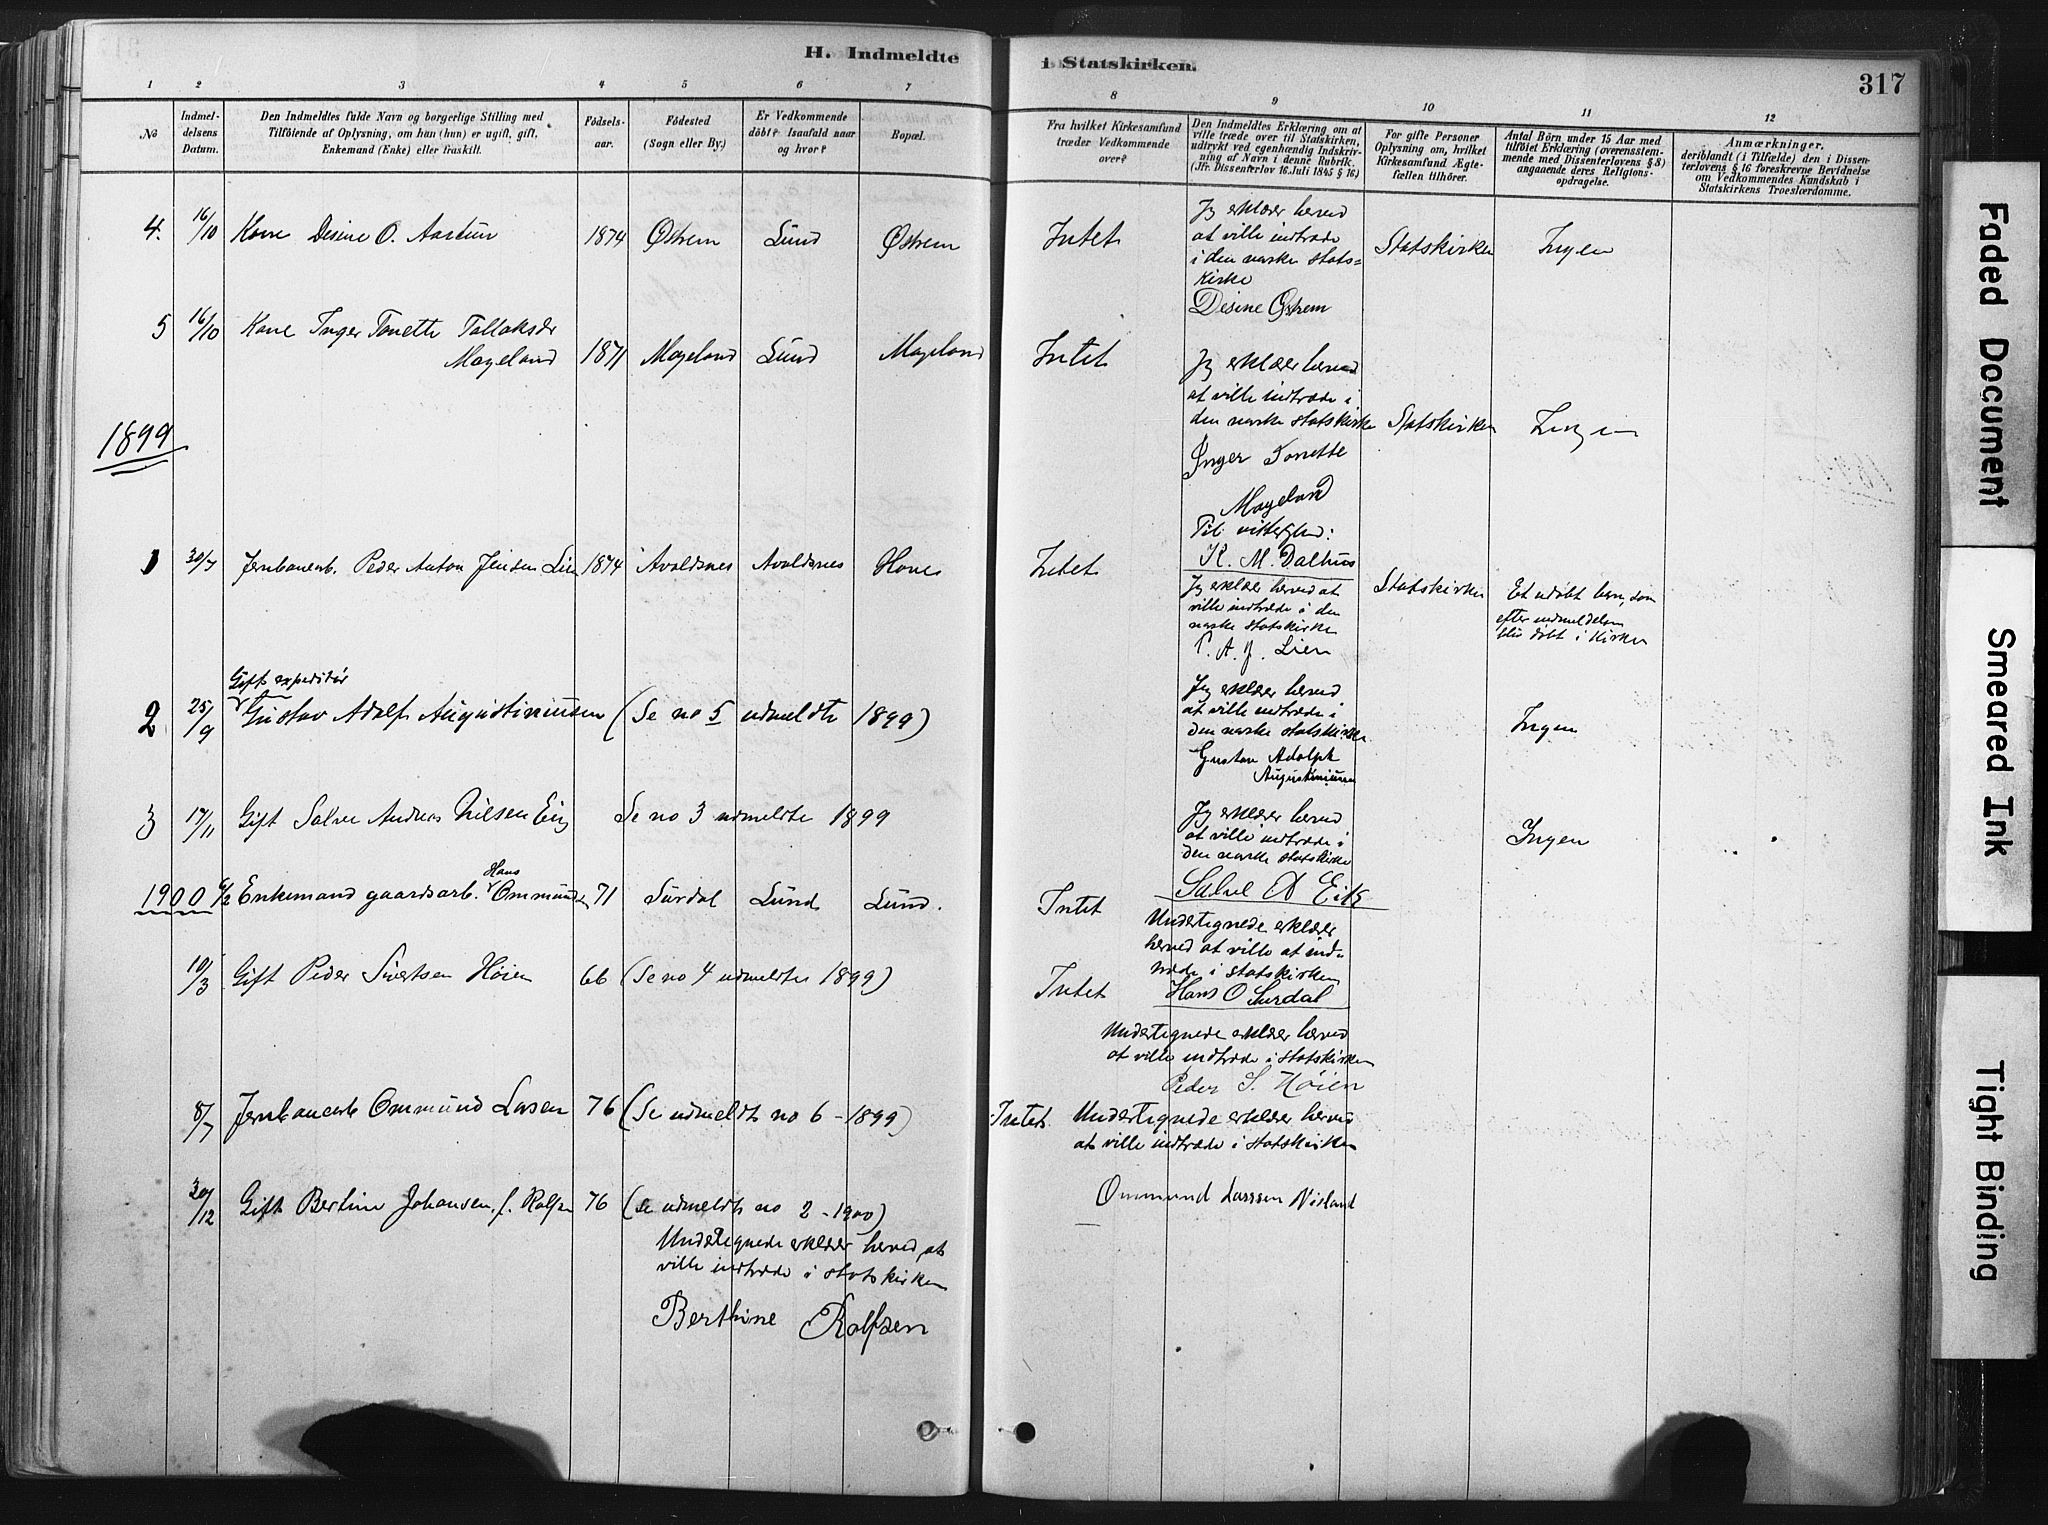 H. Indmeldte i Statskirken.
317
1 2 3 4 5 6 7 8 9 10 11 12
No
Indmel-
delsens
Datum.
Den Indmeldtes fulde Navn og borgerlige Stilling med
Tilföiende af Oplysning, om han (hun) er ugift, gift,
Enkemand (Enke) eller fraskilt.
Födsels-
aar.
Födested
(Sogn eller By.)
Er Vedkommende
döbt? Isaafald naar
og hvor?
Bopæl.
Fra hvilket Kirkesamfund
træder Vedkommende
over?
Den Indmeldtes Erklæring om at
ville træde over til Statskirken,
udtrykt ved egenhændig Indskriv-
ning af Navn i denne Rubrik.
(Jfr. Dissenterlov 16. Juli 1845 § 16)
For gifte Personer
Oplysning om, hvilket
Kirkesamfund Ægte-
fællen tilhörer.
Antal Börn under 15 Aar med
tilföiet Erklæring (overensstem-
mende med Dissenterlovens § 8)
angaaende deres Religions-
opdragelse.
Anmærkninger,
deriblandt (i Tilfælde) den i Dissen-
terlovens § 16 foreskrevne Bevidnelse
om Vedkommendes Kundskab i
Statskirkens Troeslærdomme.
4. 16/10 Kone Desine O. Aartun 1874 Østrem Lund Østrem Intet
Jeg erklærer herved
at ville indtræde
i den norske stats=
kirke
Desine Østrem
Statskirken Ingen
5 16/10 Kone Inger Tonette Tollaksdr
Mageland 1871 Mageland Lund Mageland Intet
Jeg erklærer herved
at ville indtræde i
den norske statskirke
Inger Tonette
Mageland
Til vitterlighed:
K. M. Dalhus
Statskirken Ingen
1899
1 30/7 Jernbanearb. Peder Anton Jensen Lien 1874 Avaldsnes Avaldsnes Hove Intet
Jeg erklærer herved at
ville indtræde i den
norske statskirke
P. A. J. Lien
Statskirken
Et udøbt barn, som
efter indmeldelsen
blir døbt i kirken
Gift expeditør
2 25/9 Gustav Adolf Augustiniussen (Se no 5 udmeldte 1899)
Jeg erklærer herved
at ville indtræde i
den norske statskirke
Gustav Adolph
Augustiniussen
Ingen
3 17/11 Gift Salve Andreas Nilsen Eig Se no 3 udmeldte 1899
Jeg erklærer herved
at ville indtræde i
den norske statskirke
Salve A Eik
Ingen
1900 6/2 Enkemand gaardsarb. Hans Ommundsen 71 Surdal Lund Lund. Intet
Undertegnede erklærer
herved at ville at ind-
træde i statskirken
Hans O Surdal
10/3 Gift Peder Sivertsen Høien 66 (Se no 4 udmeldte 1899) Intet
Undertegnede erklærer herved
at ville indtræde i statskirken
Peder S. Høien
8/7 Jernbanearb Ommund Lasen 76 (Se udmeldte no 6 - 1899) Intet.
Undertegnede erklærer herved
at ville indtræde i statskirken
Ommund Larssen
30/12 Gift Bertine Johansen, f. Rolfsen 76 (Se udmeldte no 2 - 1900)
Undertegnede erklærer herved, at
ville indtræde i statskirken
Berthine Rolfsen
Faded Document
Smeared Ink
Tight Binding